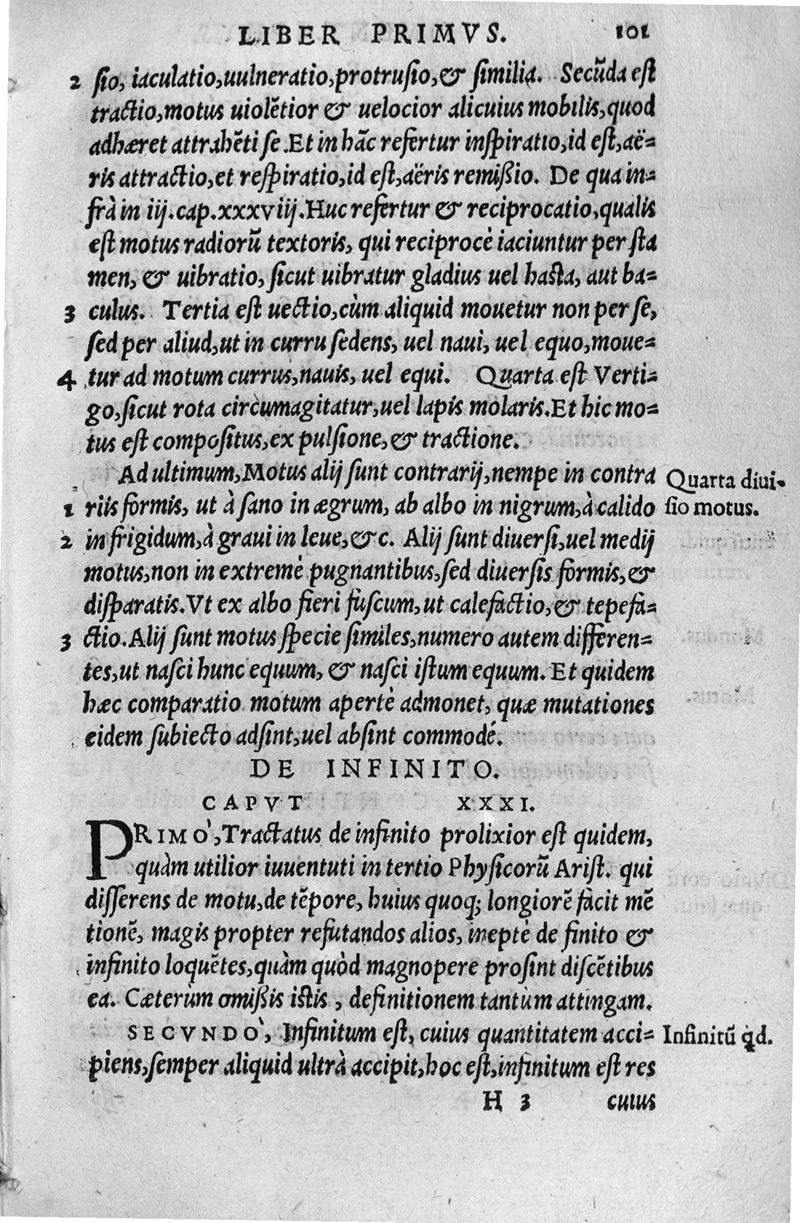 LIBER PRIMVS. 101
2 sio, iaculatio, uulneratio, protrusio, & similia. Secũda est
tractio, motus uiolẽtior & uelocior alicuius mobilis, quod
adhæret attrahẽti se. Et in hãc refertur inspiratio, id est, aë=
ris attractio, et respiratio, id est, aëris remißio. De qua in=
frà in iij. cap. xxxviij. Huc refertur & reciprocatio, qualis
est motus radiorũ textoris, qui reciprocè iaciuntur per sta
men, & uibratio, sicut uibratur gladius uel hasta, aut ba=
3 culus. Tertia est uectio, cùm aliquid mouetur non per se,
sed per aliud, ut in curru sedens, uel naui, uel equo, moue=
4 tur ad motum currus, nauis, uel equi. Quarta est Verti=
go, sicut rota circumagitatur, uel lapis molaris. Et hic mo=
tus est compositus, ex pulsione, & tractione.
Ad ultimum, Motus alij sunt contrarij, nempe in contra
Quarta diui-
1 riis formis, ut à sano in ægrum, ab albo in nigrum, à calido
sio motus.
2 in frigidum, à graui in leue, &c. Alij sunt diuersi, uel medij
motus, non in extremè pugnantibus, sed diuersis formis, &
disparatis. Vt ex albo fieri fuscum, ut calefactio, & tepefa=
3 ctio. Alij sunt motus specie similes, numero autem differen=
tes, ut nasci hunc equum, & nasci istum equum. Et quidem
hæc comparatio motum apertè admonet, quæ mutationes
eidem subiecto adsint, uel absint commodé.
DE INFINITO.
CAPVT XXXI.
PRIMO`, Tractatus de infinito prolixior est quidem,
quàm utilior iuuentuti in tertio Physicorũ Arist. qui
differens de motu, de tẽpore, huius quoq; longiorẽ facit mẽ
tionẽ, magis propter refutandos alios, ineptè de finito &
infinito loquẽtes, quàm quòd magnopere prosint discẽtibus
ea. Cæterum omißis istis, definitionem tantum attingam.
SECVNDO`, Infinitum est, cuius quantitatem acci=
Infinitũ qd.
piens, semper aliquid ultrà accipit, hoc est, infinitum est res
H 3 cuius